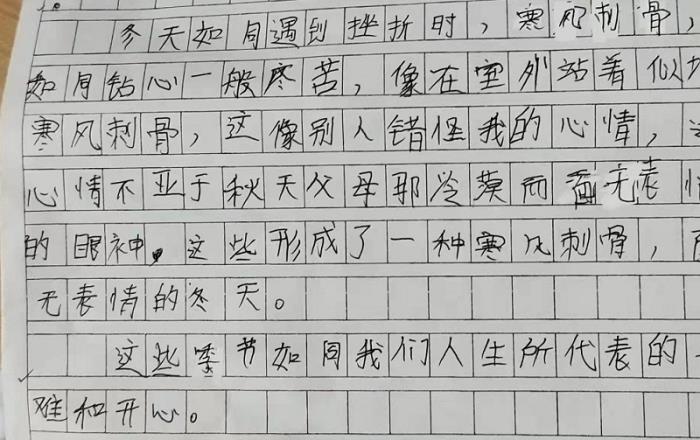 冬天如同遇到挫折时，寒风刺骨，
如同钻心一般疼苦，像在室外站着似
寒风刺骨，这像别人错怪我的心情，
心情不亚于秋天父母那冷漠而面无表
的眼神。这些形成了一种寒风刺骨，
无表情的冬天。
这些季节如同我们人生所代表的
难和开心。